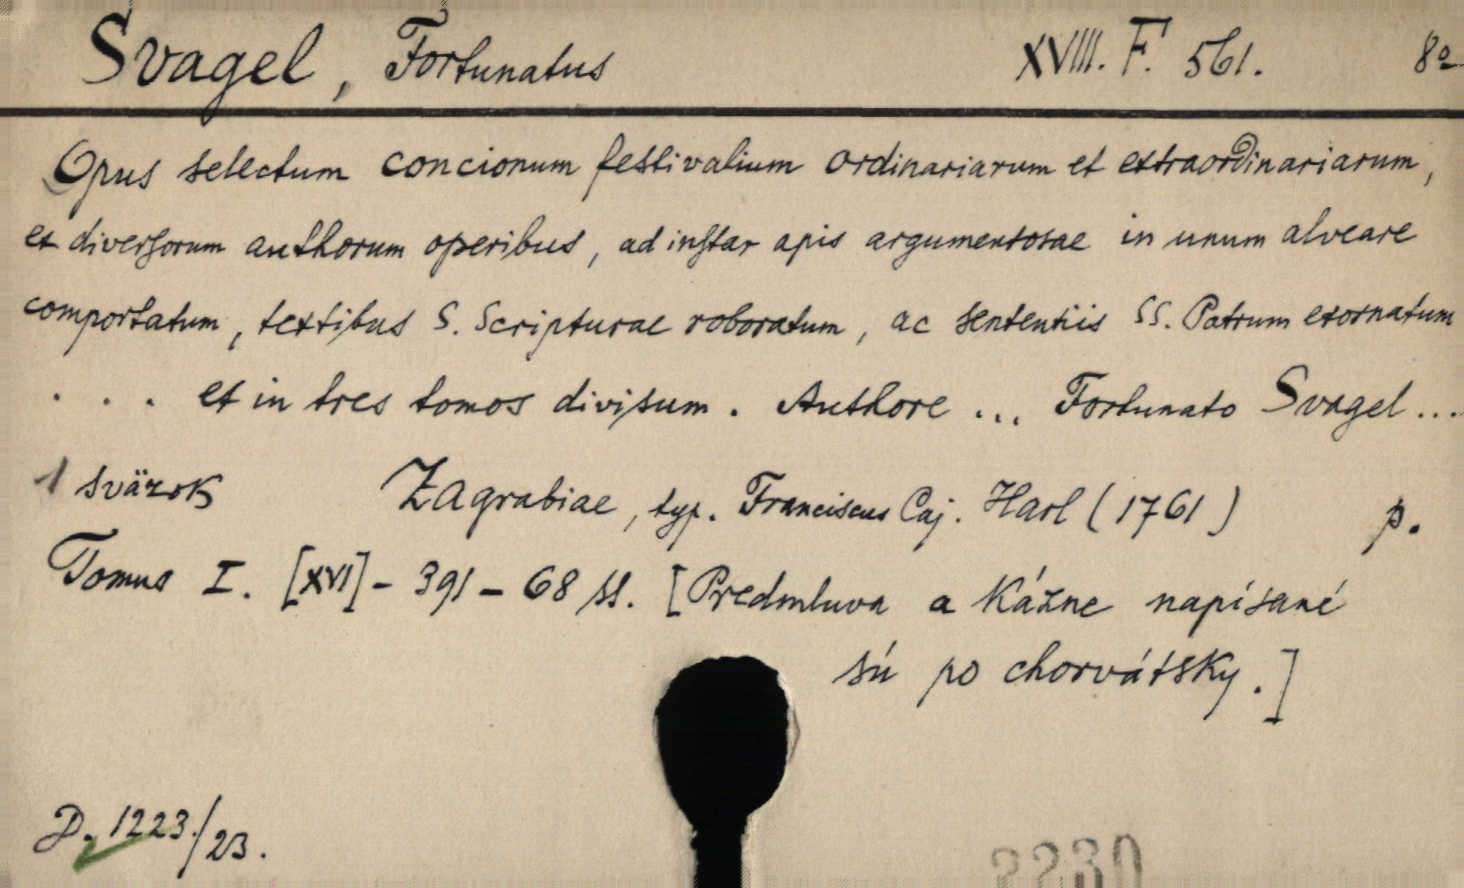 Svagel, Fortunatus XVIII. F. 561. 8º
Opus selectum concionum festivalium ordinariarum et extraordinariarum,
ex diversorum authorum operibus, ad instar apis argumentosae in unum alveare
comportatum, textibus S. Scripturae roboratum, ac sententiis SS. Patrum exornatum
... et in tres tomos divisum. Authore ... Fortunato Svagel ...
1 sväzok Zagrabiae, typ. Franciscus Caj. Harl (1761) p.
Tomus I. [XVI] - 391 - 68 ss. [Predmluva a kázne napísané
sú po chorvátsky.]
D. 1223/23.